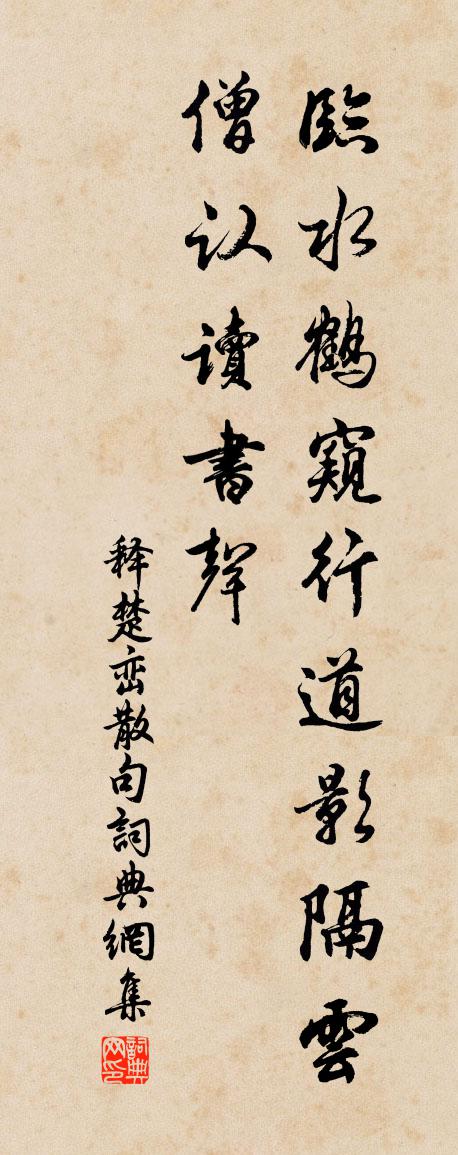 臨水鶴窺行道影隔雲
僧认讀書聲
释楚峦散句詞典網集
詞典
网印